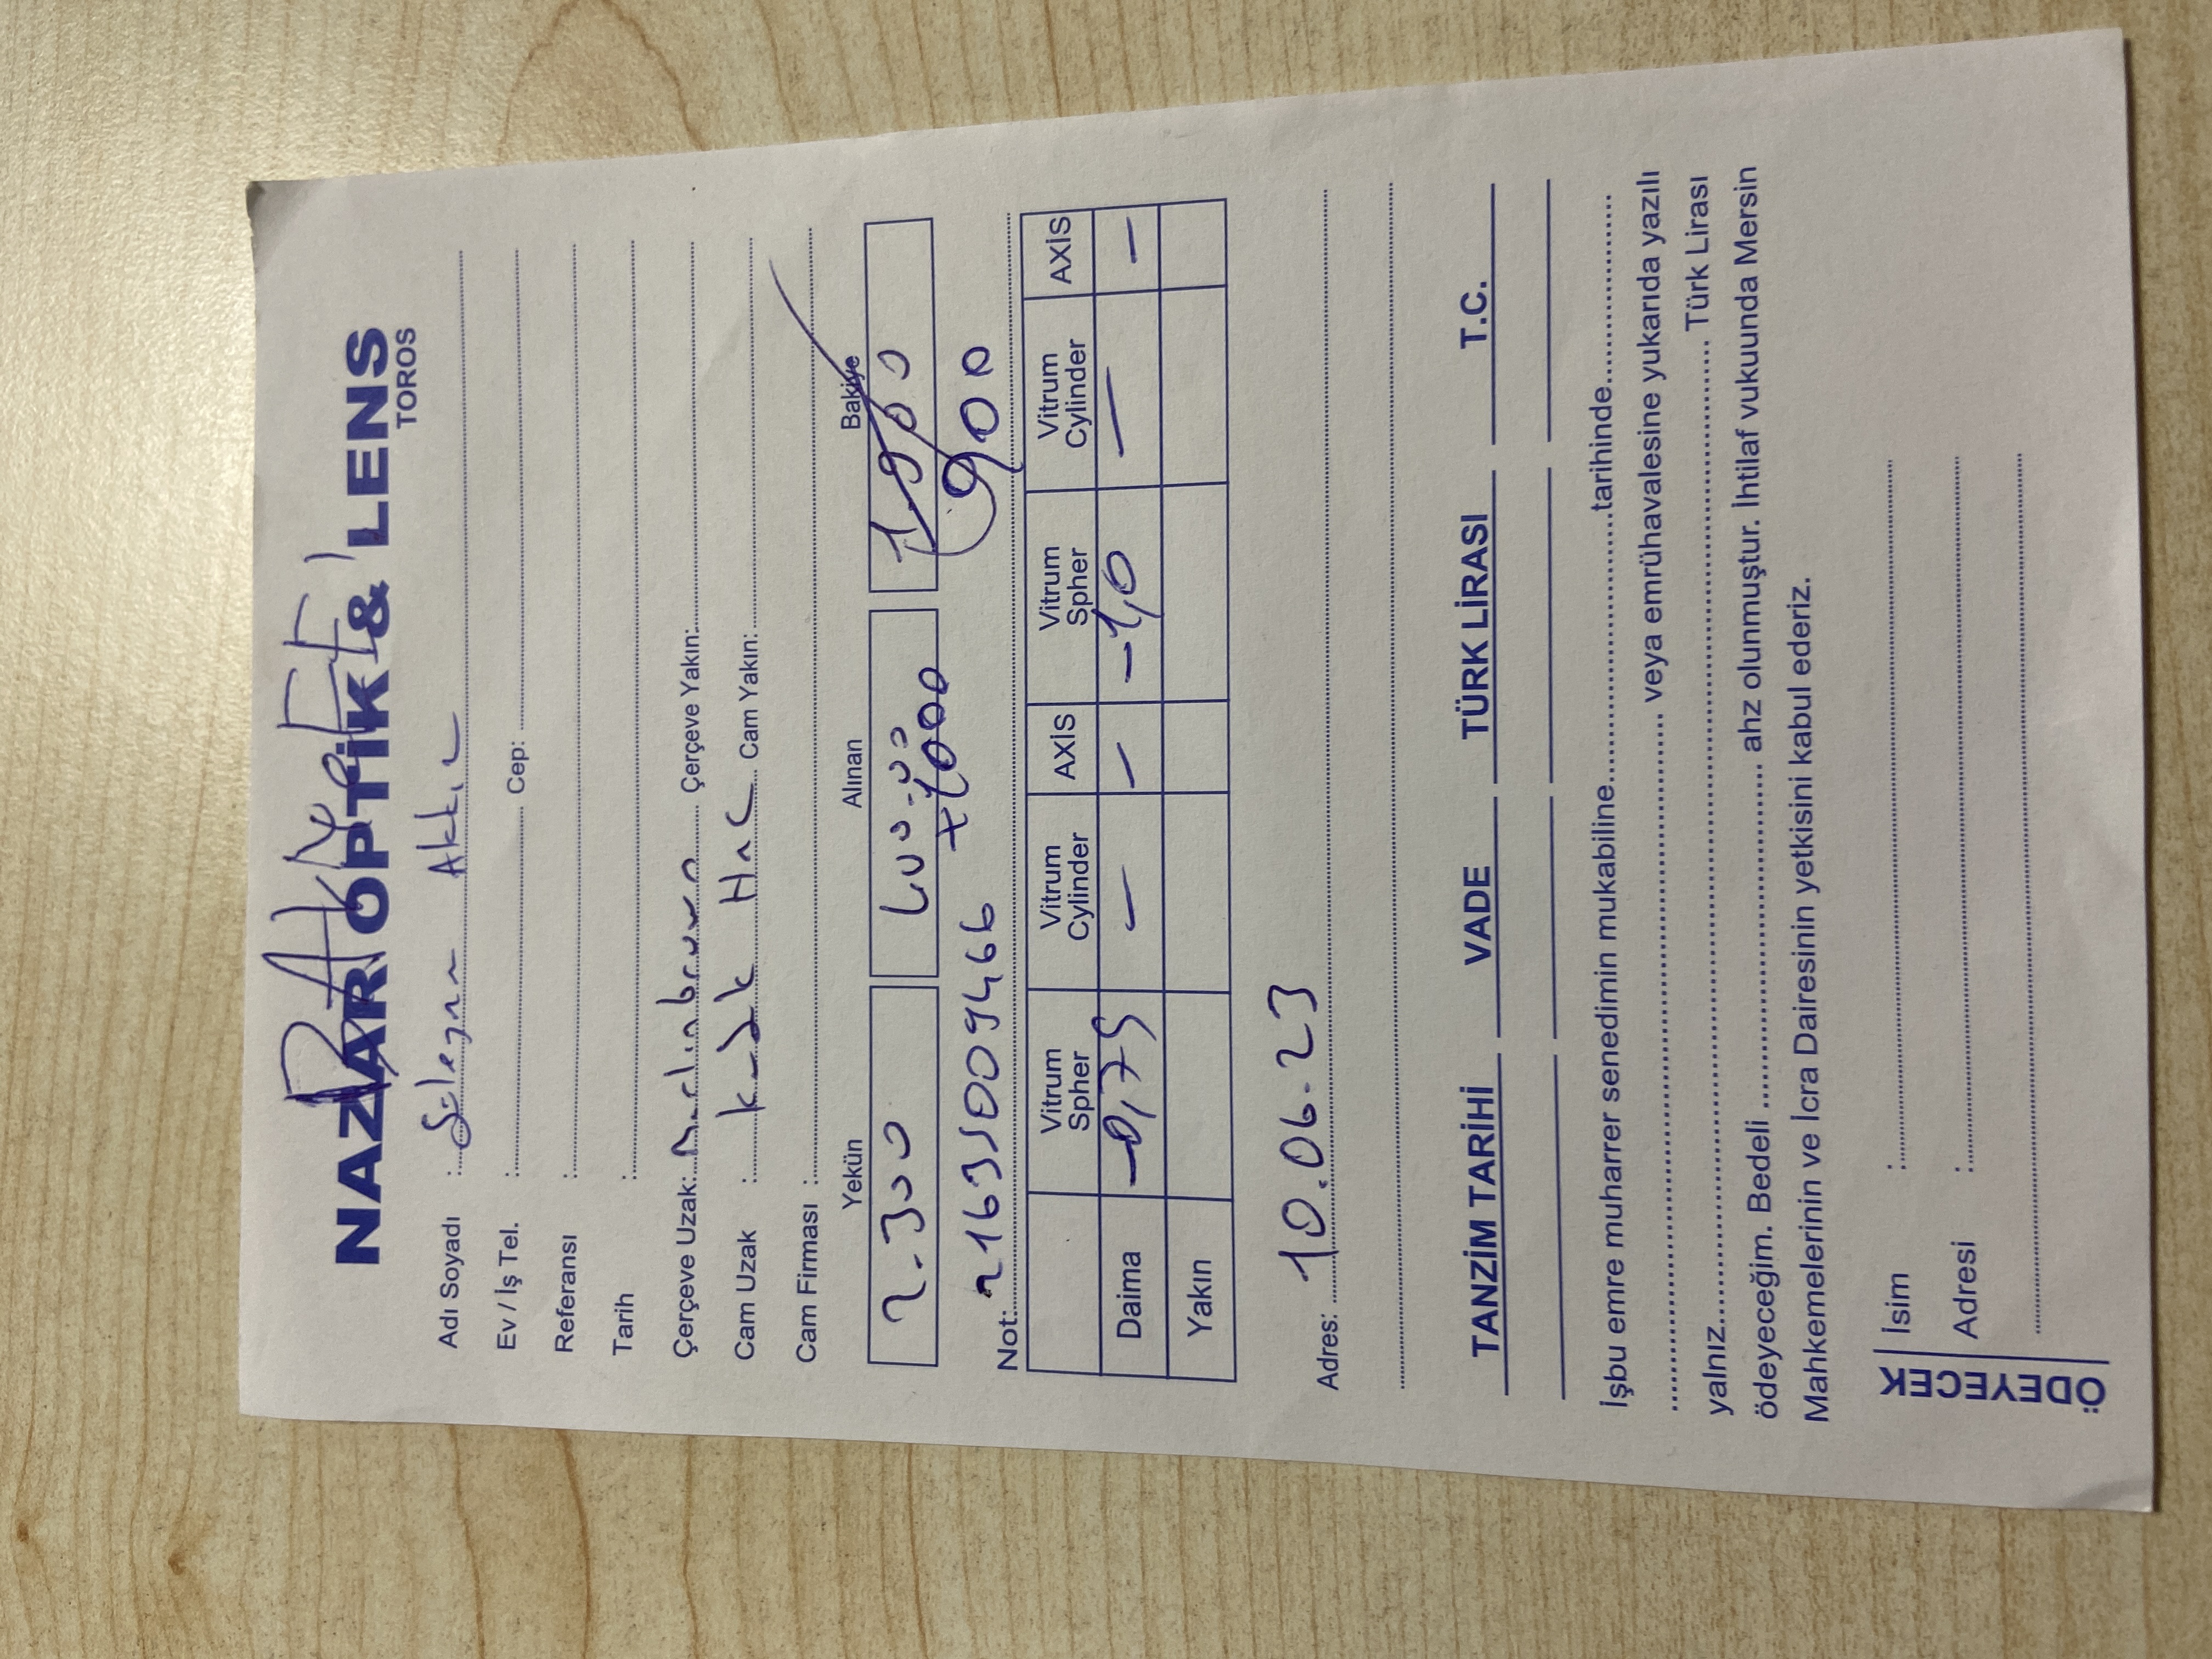 NAZAR OPTİK & LENS
TOROS
Adı Soyadı : Süleyman Akkın
Ev / İş Tel. : Cep:
Referansı :
Tarih :
Çerçeve Uzak: Çerçeve Yakın:
Cam Uzak : Cam Yakın:
Cam Firması :
Yekün Alınan Bakiye
2.300 400.00 1.900
+1000 900
Not: 21635009466
Vitrum Spher Vitrum Cylinder AXİS Vitrum Spher Vitrum Cylinder AXİS
Daima -0,75 — — -1,0 — —
Yakın
Adres: 10.06.23
TANZİM TARİHİ VADE TÜRK LİRASI T.C.
İşbu emre muharrer senedimin mukabiline............................tarihinde....................
........................................................................ veya emrühavalesine yukarıda yazılı
yalnız.................................................................................................... Türk Lirası
ödeyeceğim. Bedeli .................................... ahz olunmuştur. İhtilaf vukuunda Mersin
Mahkemelerinin ve İcra Dairesinin yetkisini kabul ederiz.
ÖDEYECEK
İsim :
Adresi :